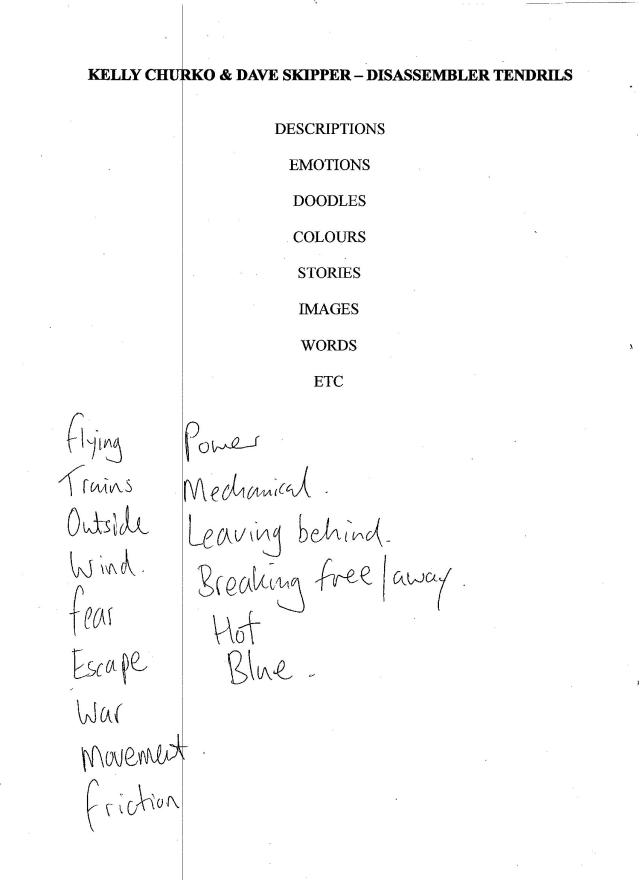 KELLY CHURKO & DAVE SKIPPER – DISASSEMBLER TENDRILS
DESCRIPTIONS
EMOTIONS
DOODLES
COLOURS
STORIES
IMAGES
WORDS
ETC
Flying
Trains
Outside
Wind.
Fear
Escape
War
Movement.
Friction
Power
Mechanical.
Leaving behind.
Breaking free/away.
Hot
Blue.